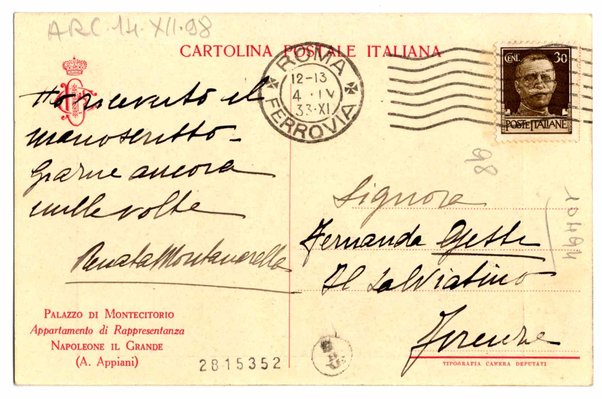 ARC. 14. XII. 98
CARTOLINA POSTALE ITALIANA
ROMA
12-13
4 IV
33·XI
FERROVIA
CENT. 30
POSTE ITALIANE
Ho ricevuto il
manoscritto -
Grazie ancora
mille volte
Renata Montanarella
98
10494
Signora
Fernanda Gesti
Il Salviatino
Firenze
PALAZZO DI MONTECITORIO
Appartamento di Rappresentanza
NAPOLEONE IL GRANDE
(A. Appiani)
2815352
TIPOGRAFIA CAMERA DEPUTATI